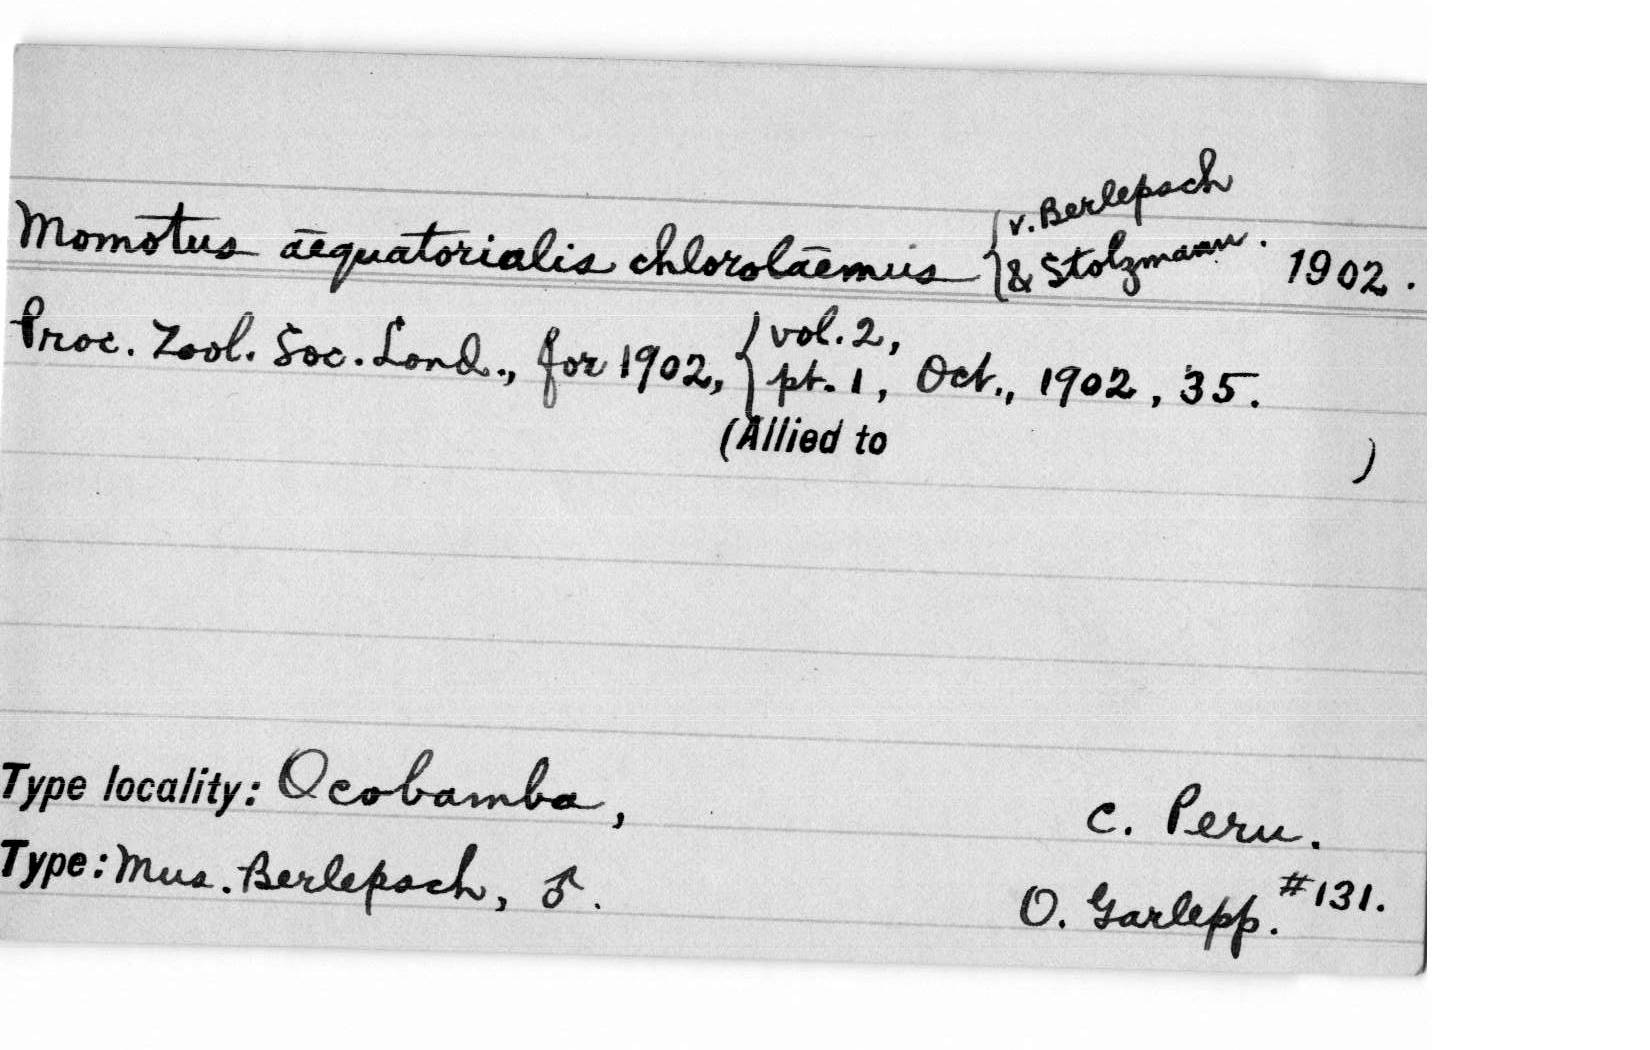 Momotus āēquatorialis chlorolāēmus { v. Berlepsch & Stolzmann. 1902.
Proc. Zool. Soc. Lond., for 1902, { vol. 2, pt. 1, Oct., 1902, 35.
(Allied to )
Type locality: Ocobamba, C. Peru.
Type: Mus. Berlepsch, ♂. O. Garlepp. #131.